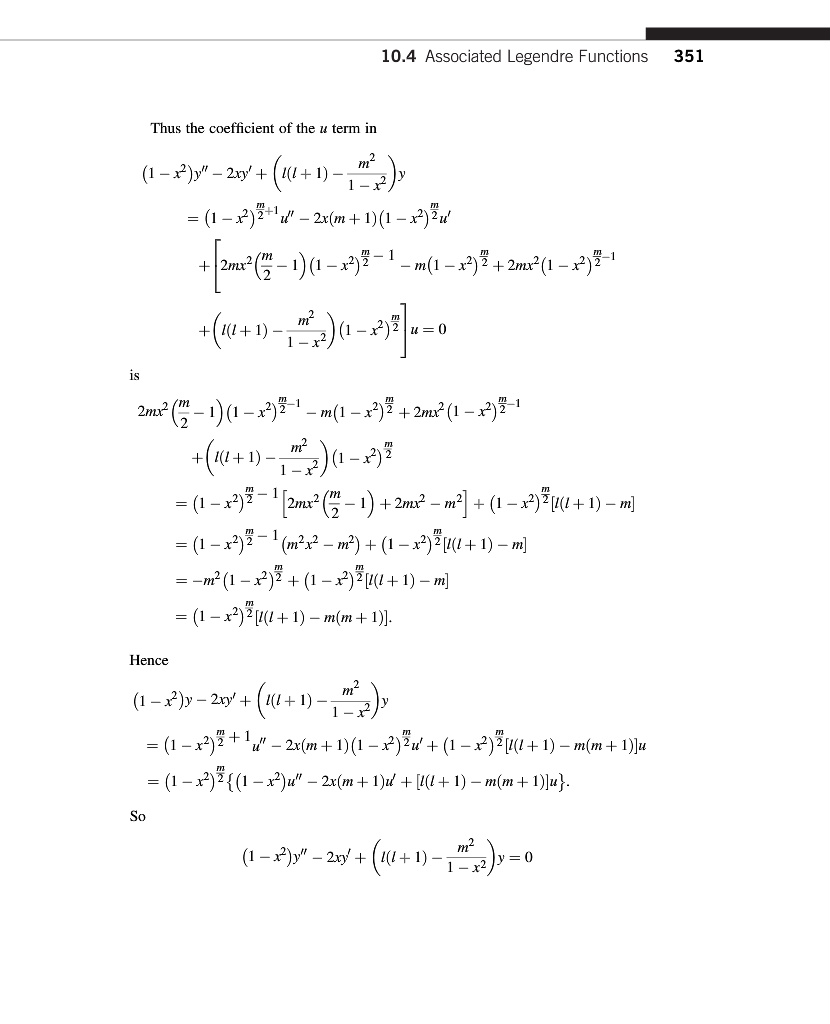 10.4 Associated Legendre Functions 351
Thus the coefficient of the u term in
(1 − x²)y″ − 2xy′ + (l(l + 1) − m²/(1 − x²))y
= (1 − x²)^(m/2+1) u″ − 2x(m + 1)(1 − x²)^(m/2) u′
+ [2mx²(m/2 − 1)(1 − x²)^(m/2 − 1) − m(1 − x²)^(m/2) + 2mx²(1 − x²)^(m/2−1)
+ (l(l + 1) − m²/(1 − x²))(1 − x²)^(m/2)]u = 0
is
2mx²(m/2 − 1)(1 − x²)^(m/2−1) − m(1 − x²)^(m/2) + 2mx²(1 − x²)^(m/2−1)
+ (l(l + 1) − m²/(1 − x²))(1 − x²)^(m/2)
= (1 − x²)^(m/2 − 1)[2mx²(m/2 − 1) + 2mx² − m²] + (1 − x²)^(m/2)[l(l + 1) − m]
= (1 − x²)^(m/2 − 1)(m²x² − m²) + (1 − x²)^(m/2)[l(l + 1) − m]
= −m²(1 − x²)^(m/2) + (1 − x²)^(m/2)[l(l + 1) − m]
= (1 − x²)^(m/2)[l(l + 1) − m(m + 1)].
Hence
(1 − x²)y − 2xy′ + (l(l + 1) − m²/(1 − x²))y
= (1 − x²)^(m/2 + 1) u″ − 2x(m + 1)(1 − x²)^(m/2) u′ + (1 − x²)^(m/2)[l(l + 1) − m(m + 1)]u
= (1 − x²)^(m/2){(1 − x²)u″ − 2x(m + 1)u′ + [l(l + 1) − m(m + 1)]u}.
So
(1 − x²)y″ − 2xy′ + (l(l + 1) − m²/(1 − x²))y = 0